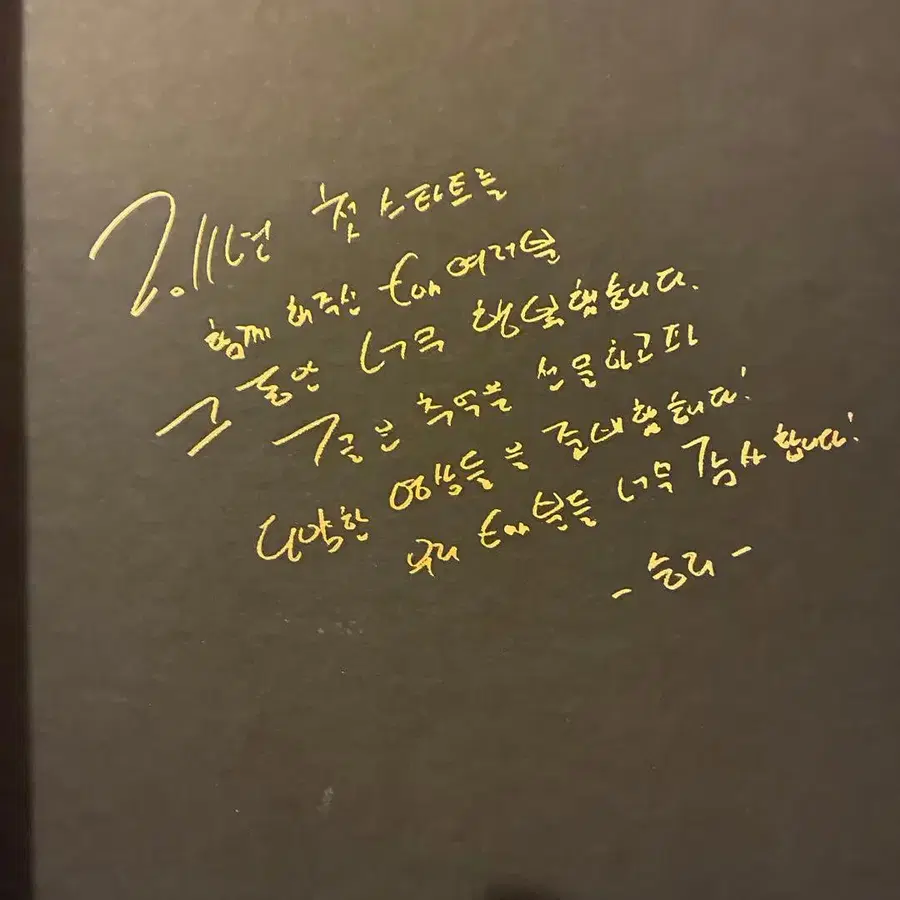 2011년 첫 스타트를
함께 해주신 fan 여러분
그 동안 너무 행복했습니다.
좋은 추억을 선물하고파
다양한 영상들을 준비했습니다!
우리 fan분들 너무 감사합니다!
- 승리 -